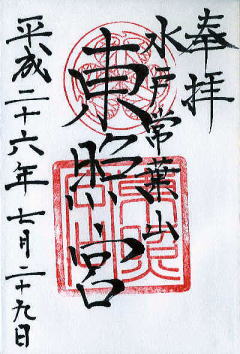 奉拝
水戸常葉山
東照宮
平成二十六年七月二十九日